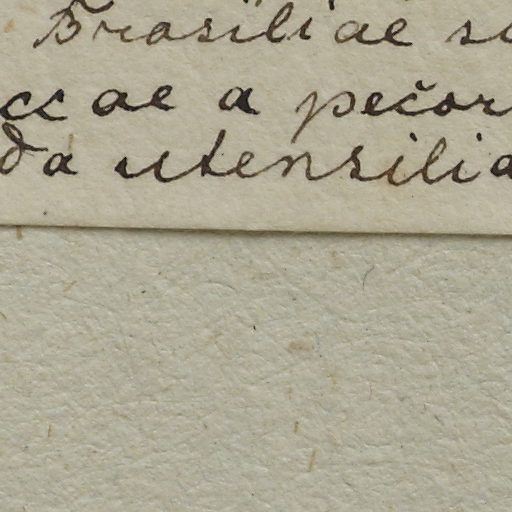 Brasiliae
ccae a pecor
da utensilia